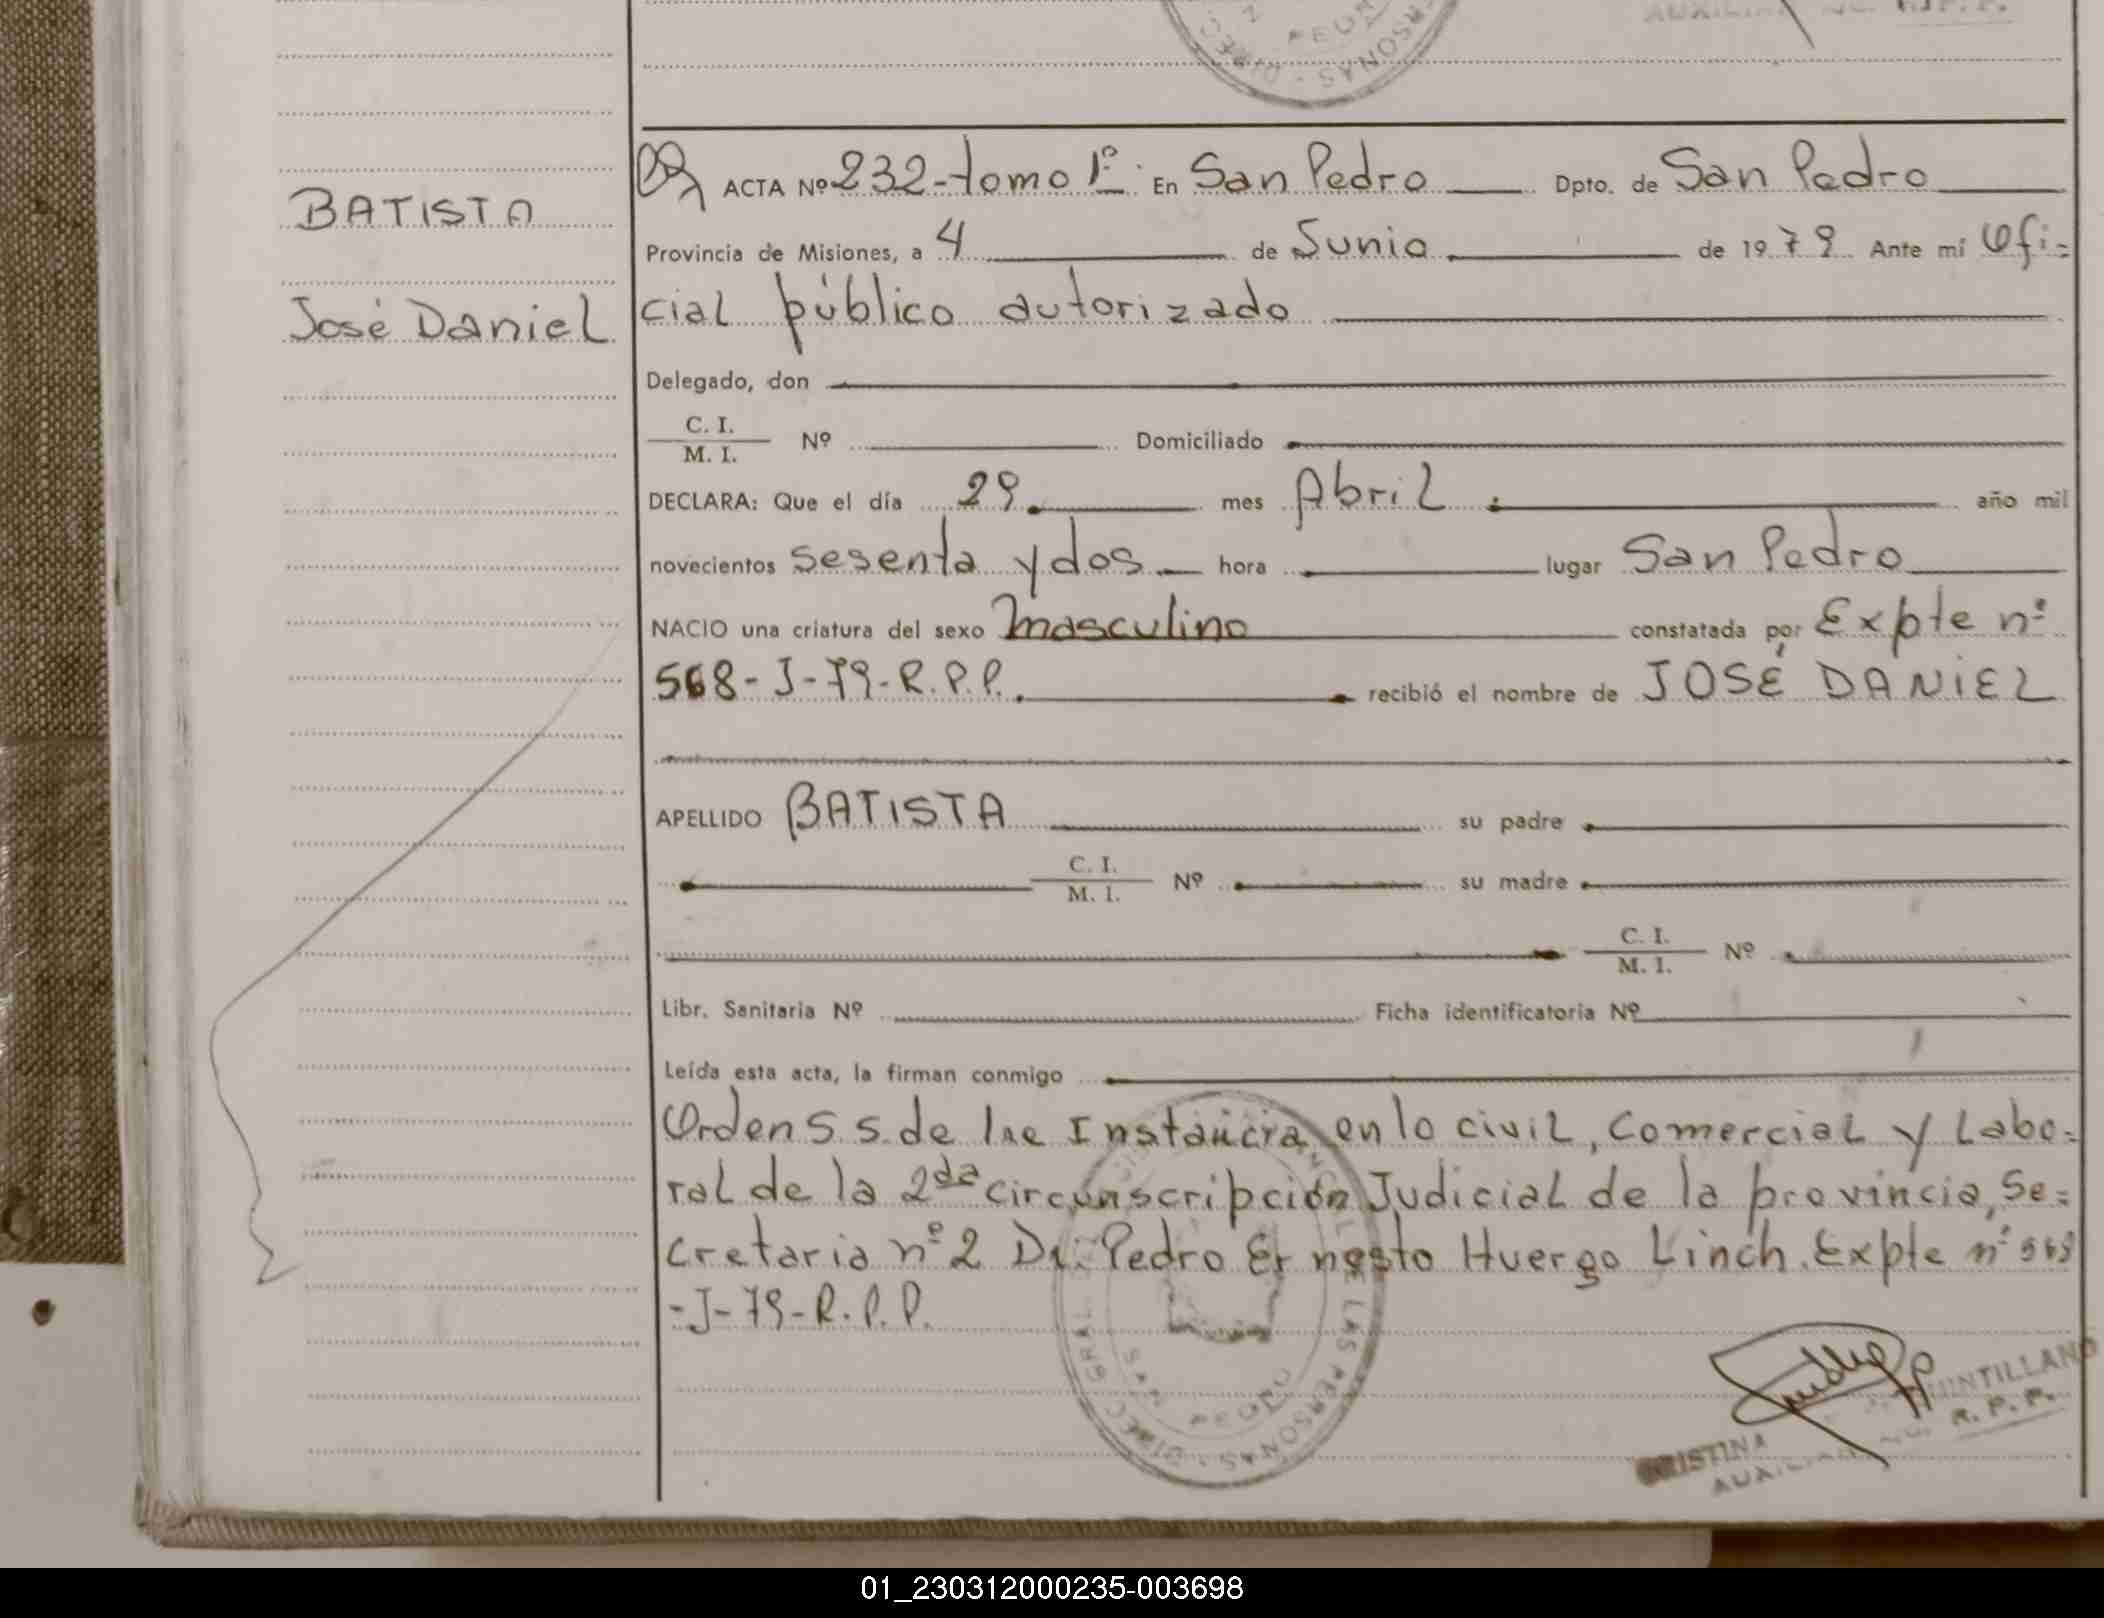 BATISTA
José Daniel
ACTA Nº 232-tomo 1º En San Pedro Dpto. de San Pedro
Provincia de Misiones, a 4 de Junio de 1979 Ante mí Ofi=
cial público autorizado
Delegado, don
C. I.
M. I. Nº Domiciliado
DECLARA: Que el día 29 mes Abril año mil
novecientos sesenta y dos hora lugar San Pedro
NACIO una criatura del sexo masculino constatada por Expte nº
568-J-79-R.P.P. recibió el nombre de JOSÉ DANIEL
APELLIDO BATISTA su padre
C. I.
M. I. Nº su madre
C. I.
M. I. Nº
Libr. Sanitaria Nº Ficha identificatoria Nº
Leída esta acta, la firman conmigo
Orden S.S. de 1ae Instancia en lo civil, Comercial y Labo=
ral de la 2da circunscripción Judicial de la provincia, Se=
cretaria nº 2 Dr. Pedro Ernesto Huergo Linch. Expte nº 568
-J-79-R.P.P.
DIREC GRAL LAS PERSONAS
SAN PEDRO
QUINTILLANO
R. P. P.
01_230312000235-003698